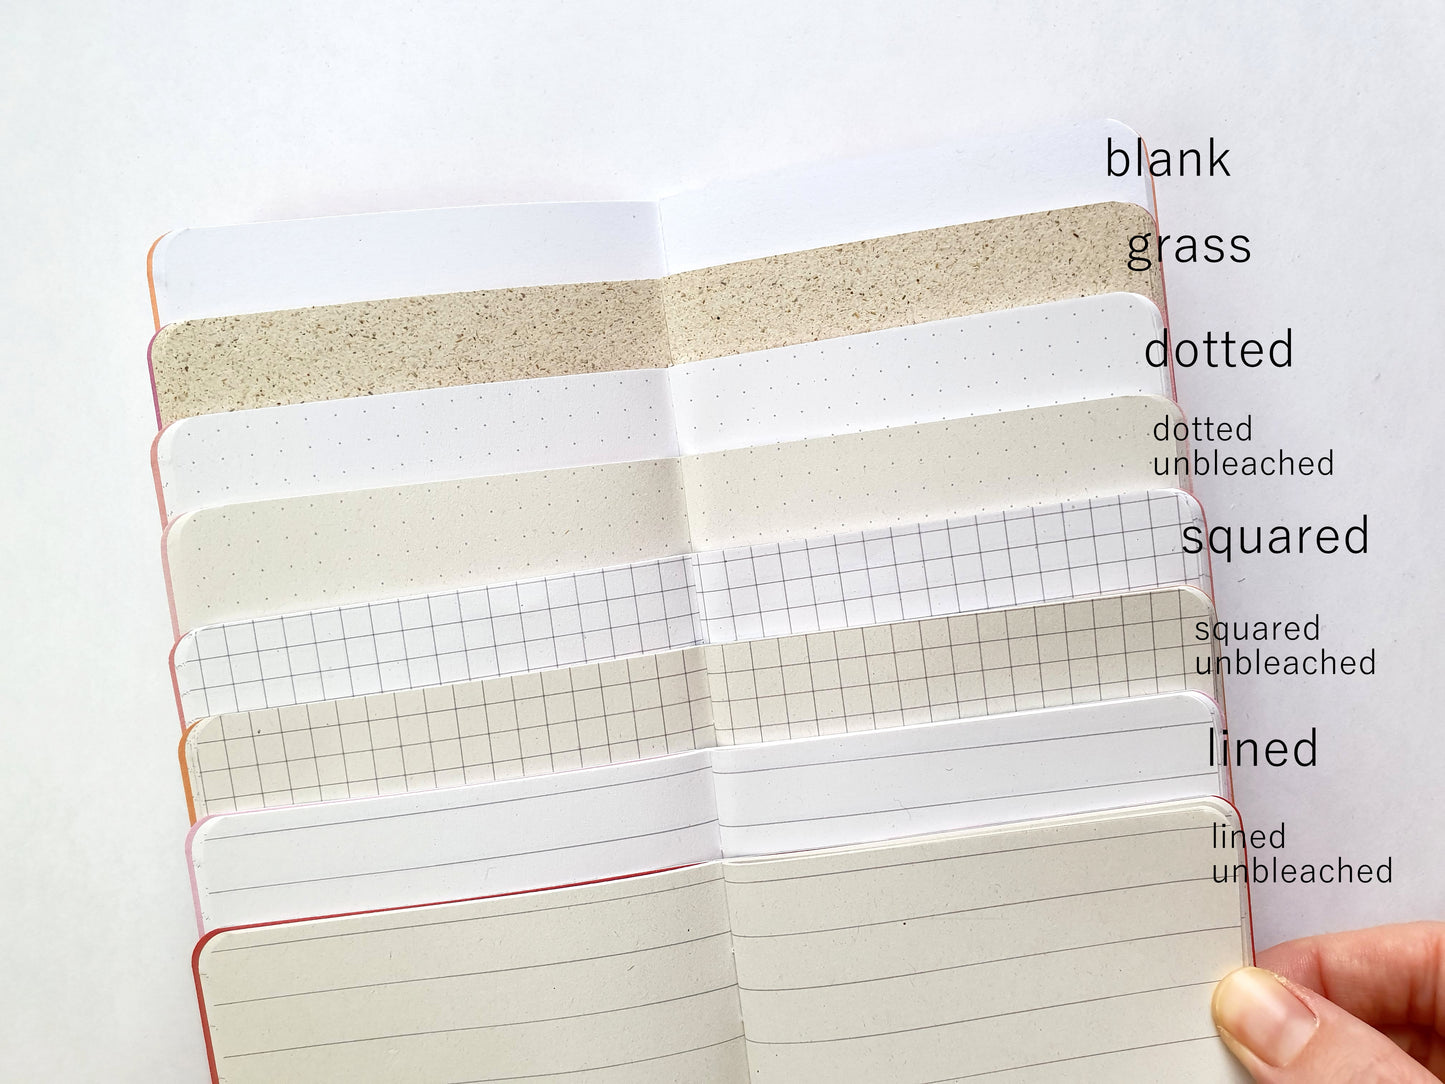 blank
grass
dotted
dotted
unbleached
squared
squared
unbleached
lined
lined
unbleached